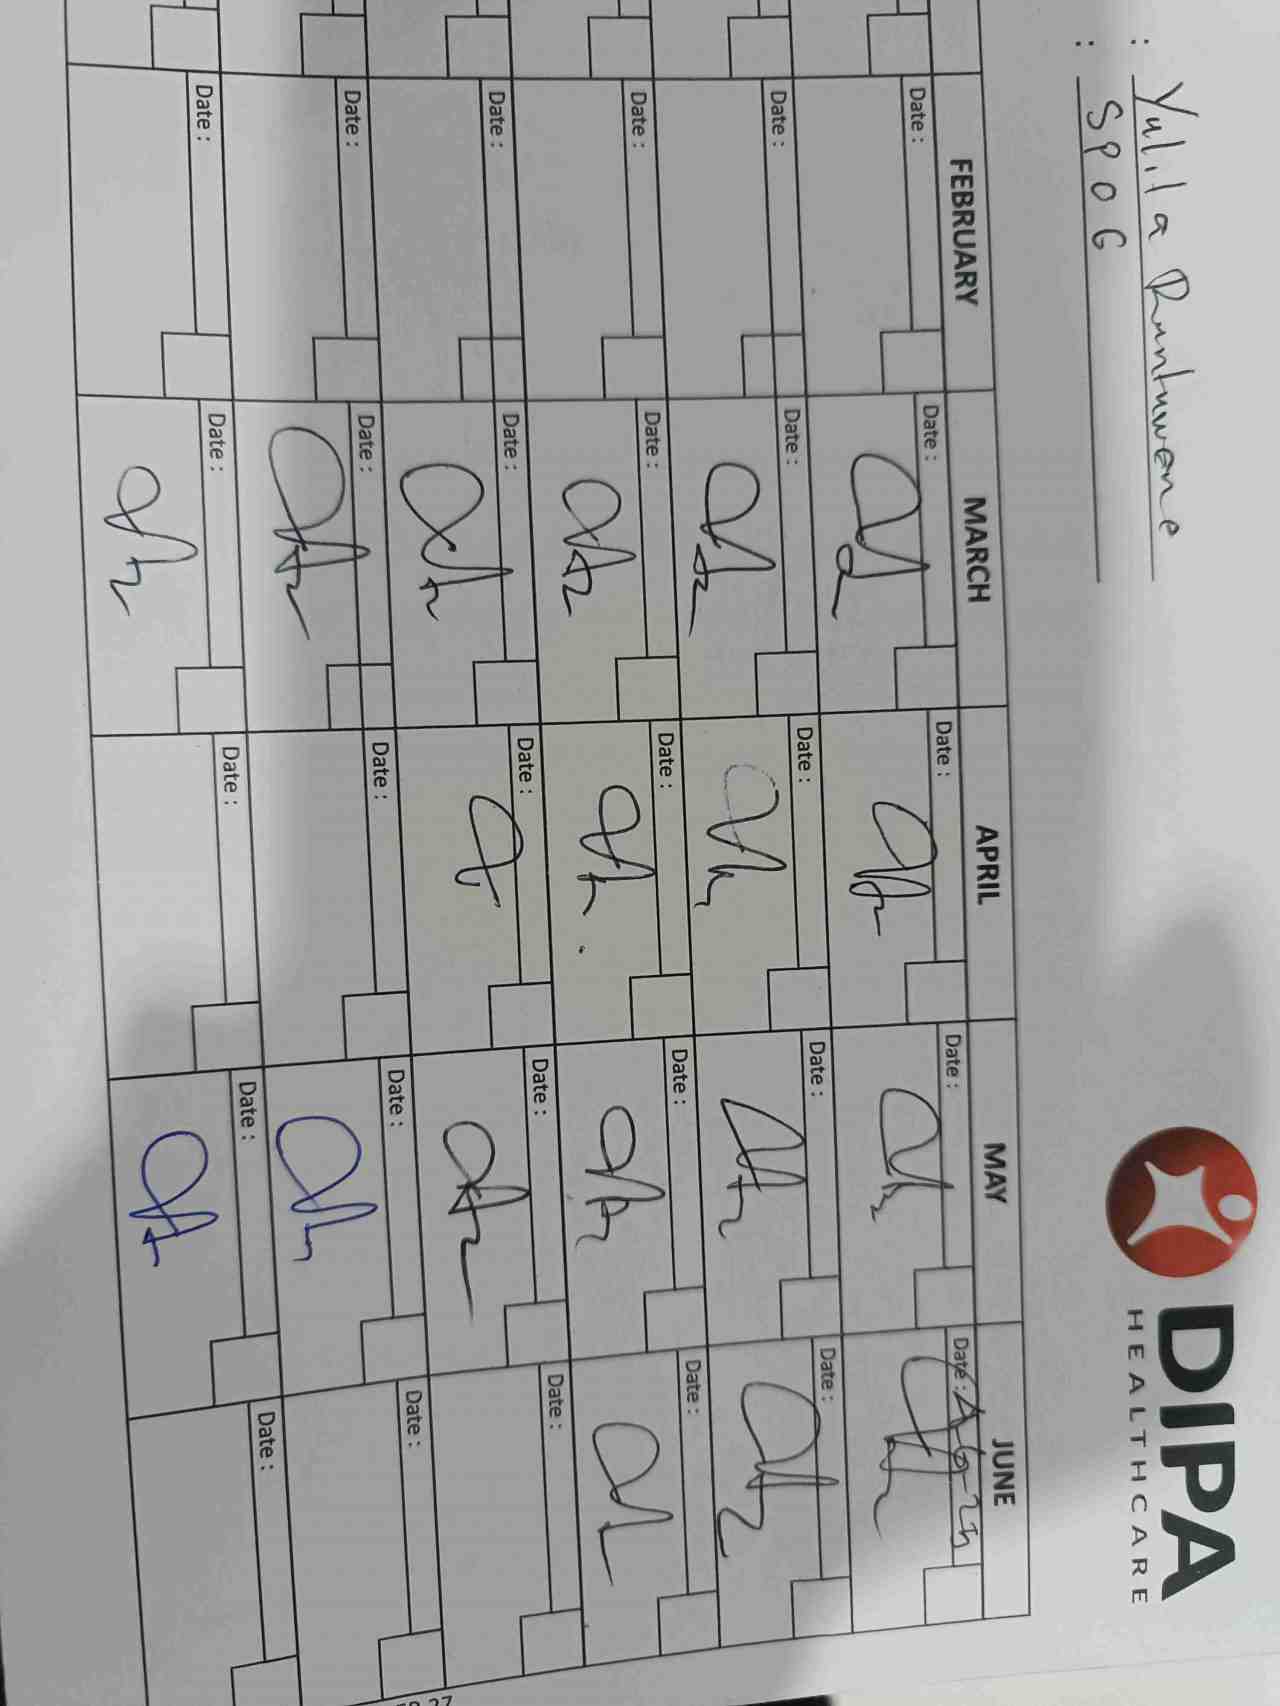 : Yulita Runtuwene
: SPOG
DIPA
HEALTHCARE
FEBRUARY MARCH APRIL MAY JUNE
Date : Date : Date : Date : Date :
Date : Date : Date : Date : Date :
Date : Date : Date : Date : Date :
Date : Date : Date : Date : Date :
Date : Date : Date : Date : Date :
Date : Date : Date : Date : Date :